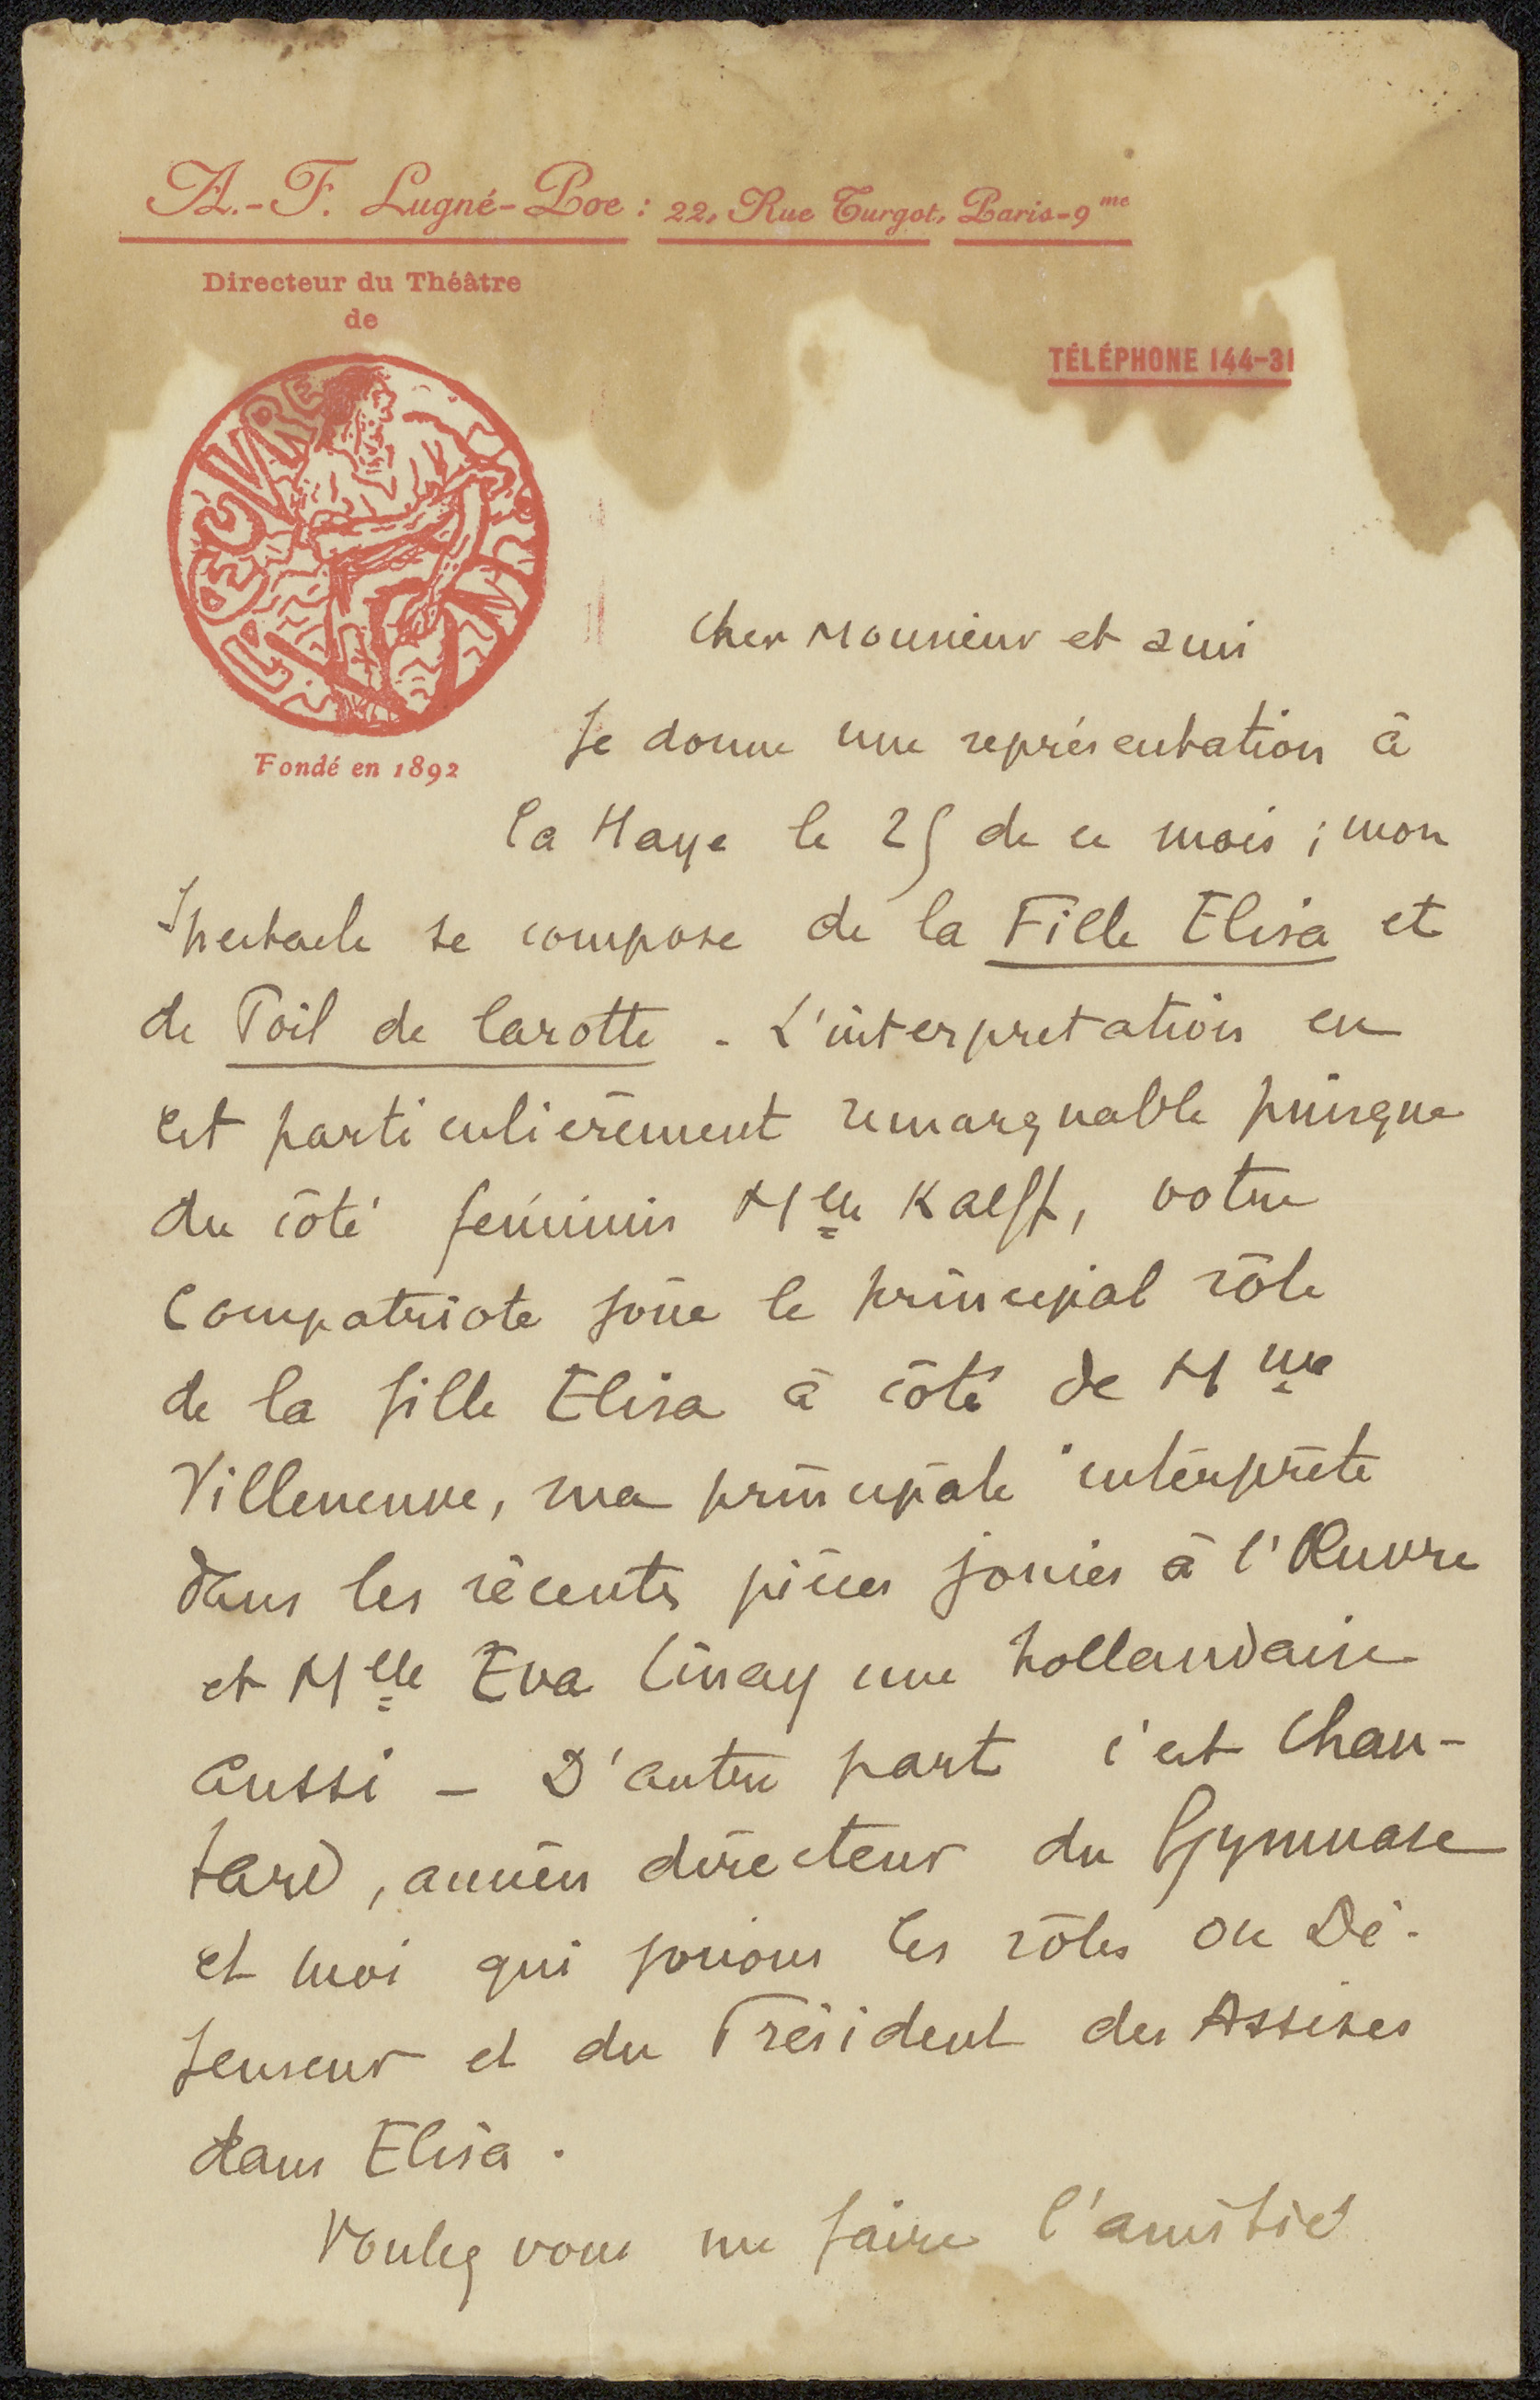 A.-F. Lugné-Poe : 22, Rue Turgot, Paris-9me
Directeur du Théâtre
de
TÉLÉPHONE 144-31
L'ŒUVRE
Fondé en 1892
Cher Monsieur et ami
Je donne une représentation à
la Haye le 25 de ce mois ; mon
Spectacle se compose de la Fille Elisa et
de Poil de Carotte - L'interpretation en
est particulièrement remarquable puisque
du côté feminin Mlle Kalff, votre
Compatriote joue le principal rôle
de la fille Elisa à côté de Mme
Villeneuve, ma principale interprète
dans les récentes pièces jouées à l'Œuvre
et Mlle Eva Cinay une hollandaise
aussi - D'autre part c'est Chau-
tard, ancien directeur du Gymnase
et moi qui jouons les rôles du Dé-
fenseur et du Président des Assises
dans Elisa.
Voulez vous me faire l'amitié